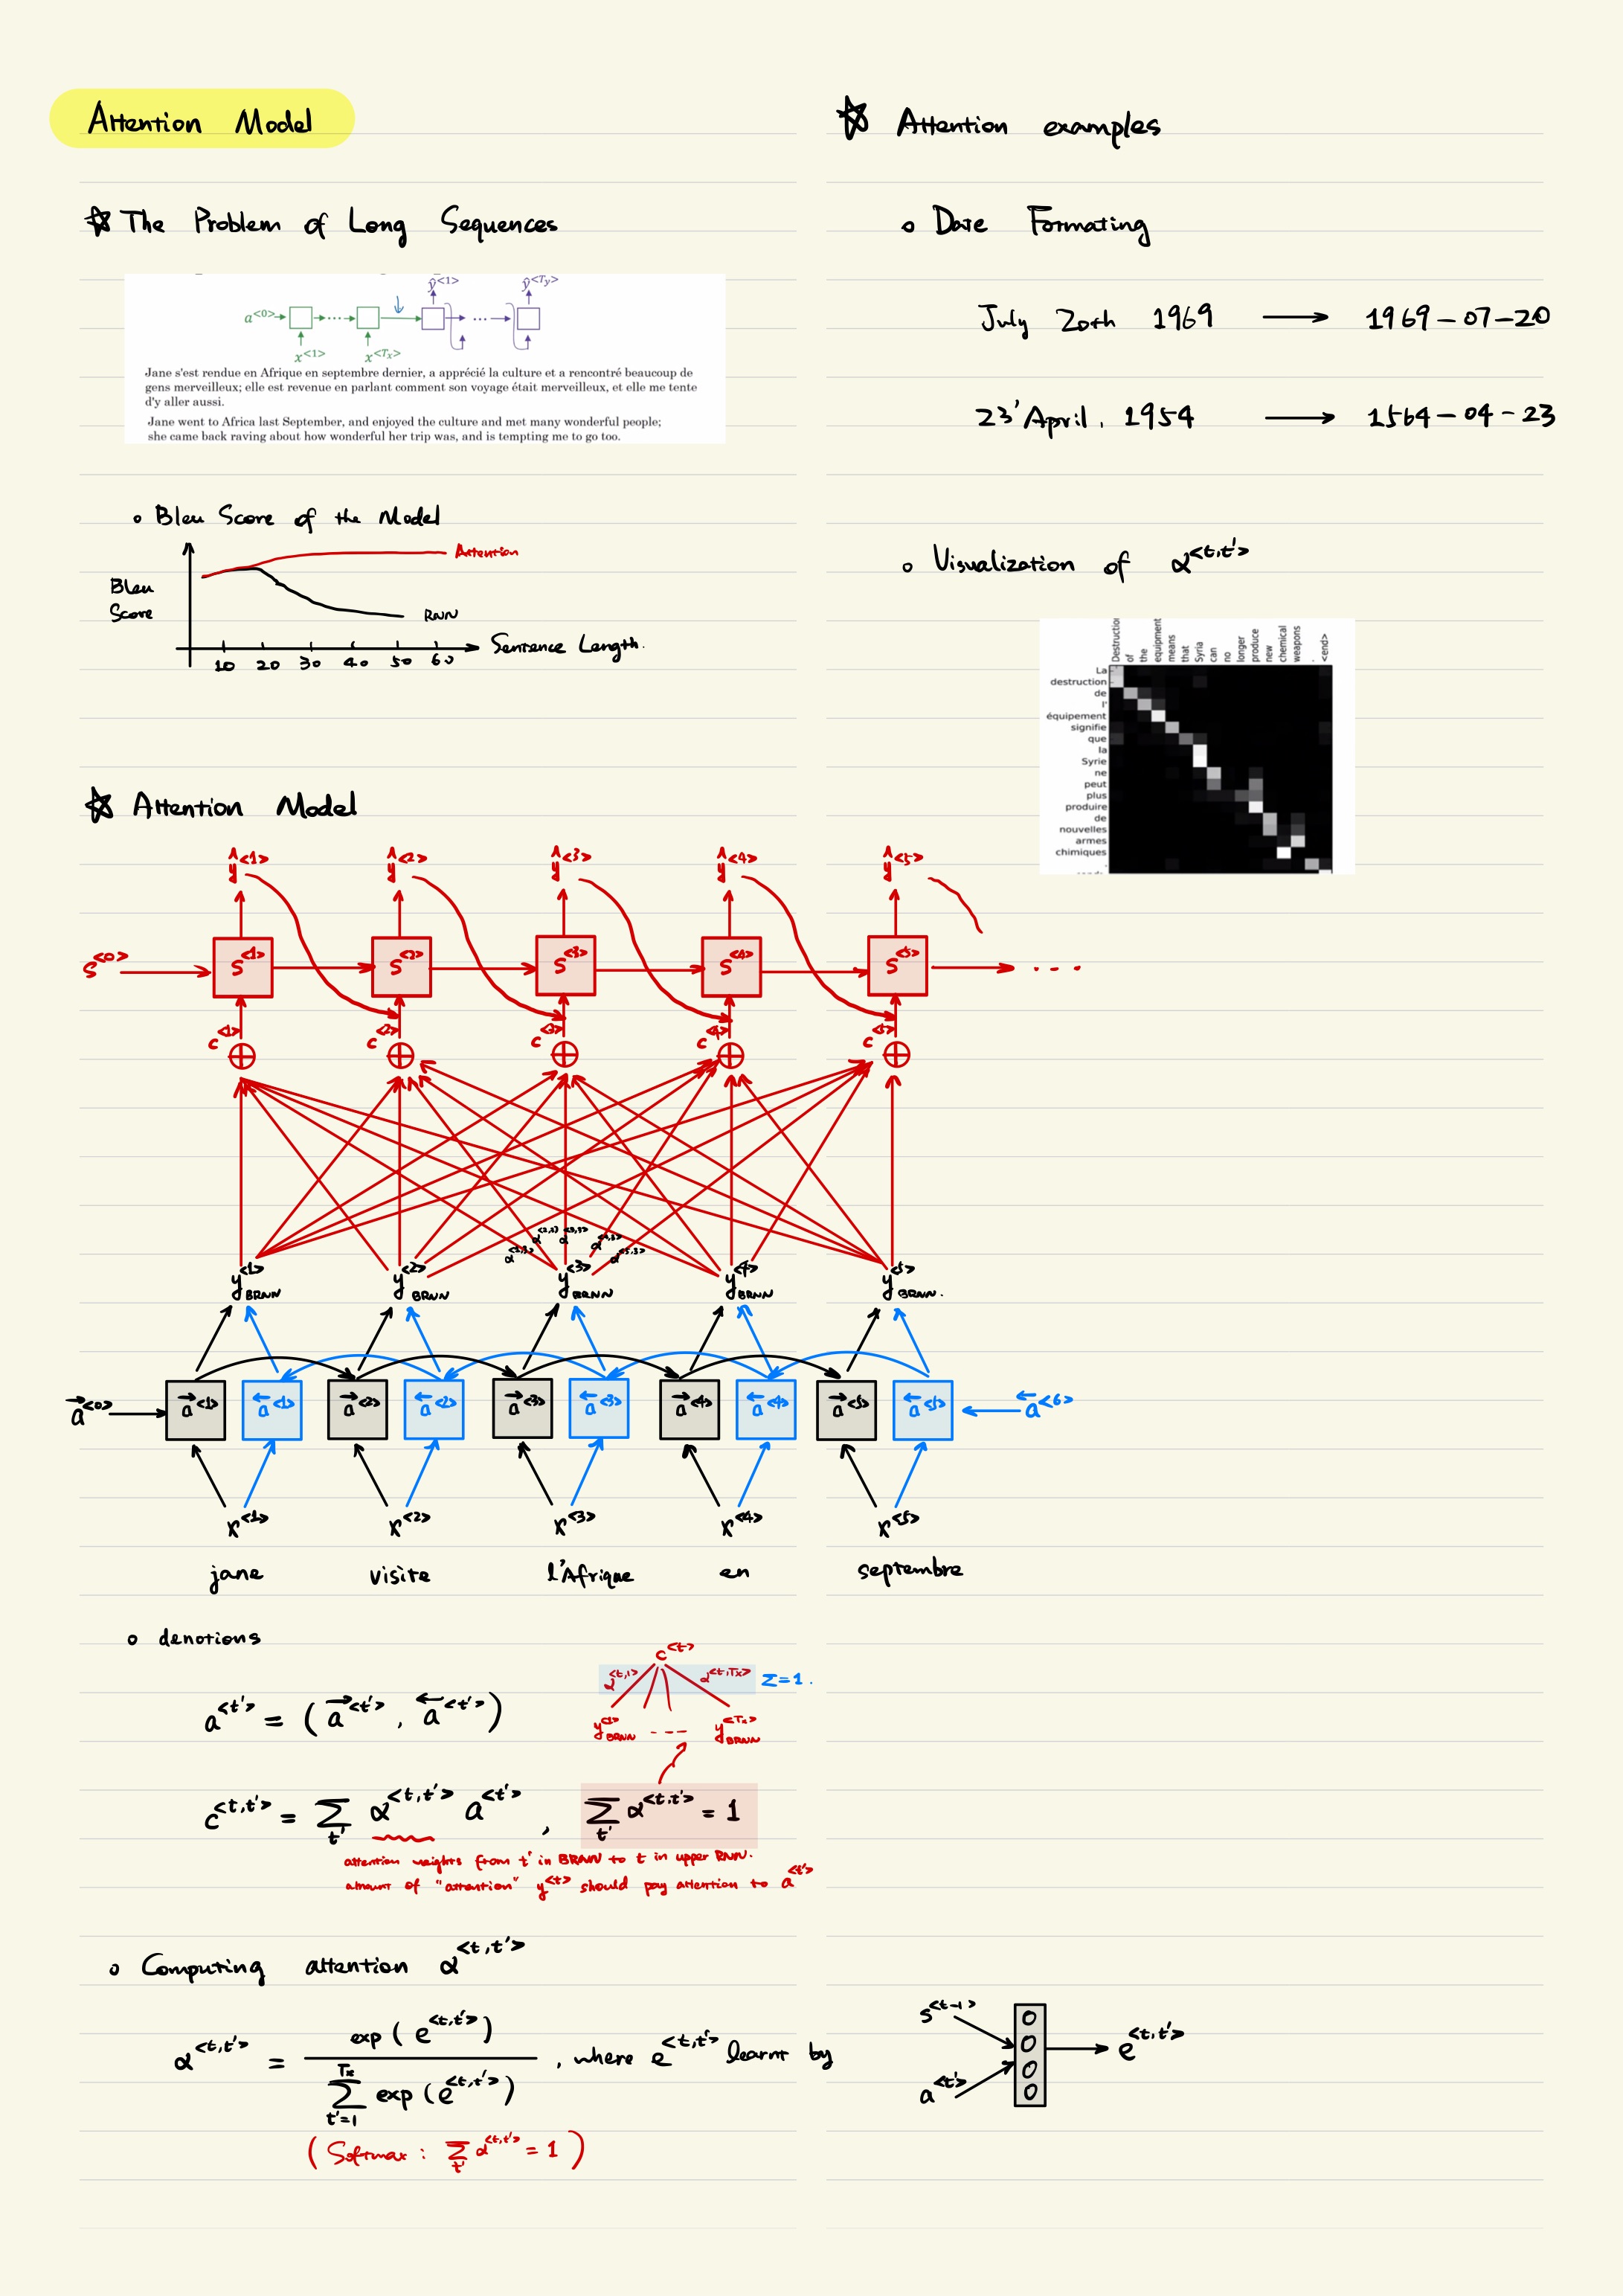 Attention Model
☆ The Problem of Long Sequences
ŷ<1> ŷ<Ty>
a<0> ... ...
x<1> x<Tx>
Jane s'est rendue en Afrique en septembre dernier, a apprécié la culture et a rencontré beaucoup de
gens merveilleux; elle est revenue en parlant comment son voyage était merveilleux, et elle me tente
d'y aller aussi.
Jane went to Africa last September, and enjoyed the culture and met many wonderful people;
she came back raving about how wonderful her trip was, and is tempting me to go too.
∘ Bleu Score of the Model
Attention
Bleu
Score
RNN
Sentence Length.
10 20 30 40 50 60
☆ Attention Model
ŷ<1> ŷ<2> ŷ<3> ŷ<4> ŷ<5>
s<0> s<1> s<2> s<3> s<4> s<5> ...
c<1> c<2> c<3> c<4> c<5>
α<2,3> α<3,3> α<4,3> α<5,3>
y<1>BRNN y<2>BRNN y<3>BRNN y<4>BRNN y<5>BRNN.
→a<0> →a<1> ←a<1> →a<2> ←a<2> →a<3> ←a<3> →a<4> ←a<4> →a<5> ←a<5> ←a<6>
x<1> x<2> x<3> x<4> x<5>
jane visite l'Afrique en septembre
∘ denotions
c<t>
α<t,1> α<t,Tx> Σ=1.
y<1>BRNN --- y<Tx>BRNN
a<t'> = (→a<t'>, ←a<t'>)
c<t,t'> = Σt' α<t,t'> a<t'>, Σt' α<t,t'> = 1
attention weights from t' in BRNN to t in upper RNN.
amount of "attention" y<t> should pay attention to a<t'>
∘ Computing attention α<t,t'>
α<t,t'> = exp(e<t,t'>) / Σt'=1 Tx exp(e<t,t'>), where e<t,t'> learnt by
s<t-1>
a<t'>
e<t,t'>
(Softmax: Σt' α<t,t'> = 1)
☆ Attention examples
∘ Date Formating
July 20th 1969 → 1969-07-20
23' April. 1954 → 1564-04-23
∘ Visualization of α<t,t'>
Destructio
of
the
equipment
means
that
Syria
can
no
longer
produce
new
chemical
weapons
.
<end>
La
destruction
de
l'
équipement
signifie
que
la
Syrie
ne
peut
plus
produire
de
nouvelles
armes
chimiques
.